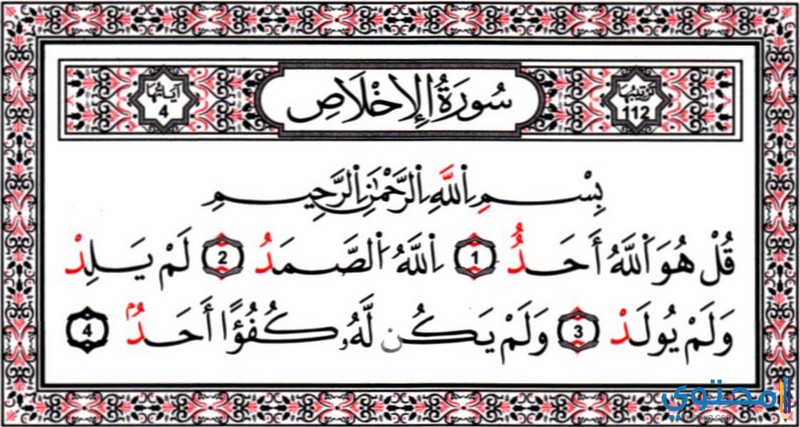 ترتيبها
112
سُورَةُ الإِخْلَاصِ
آيَاتُهَا
4
بِسْمِ اِللَّهِ اِلرَّحْمَٰنِ اِلرَّحِيمِ
قُلْ هُوَ اَللَّهُ أَحَدٌ 1 اِللَّهُ اُلصَّمَدُ 2 لَمْ يَلِدْ
وَلَمْ يُولَدْ 3 وَلَمْ يَكُن لَّهُۥ كُفُؤًا أَحَدٌۢ 4
محتوى